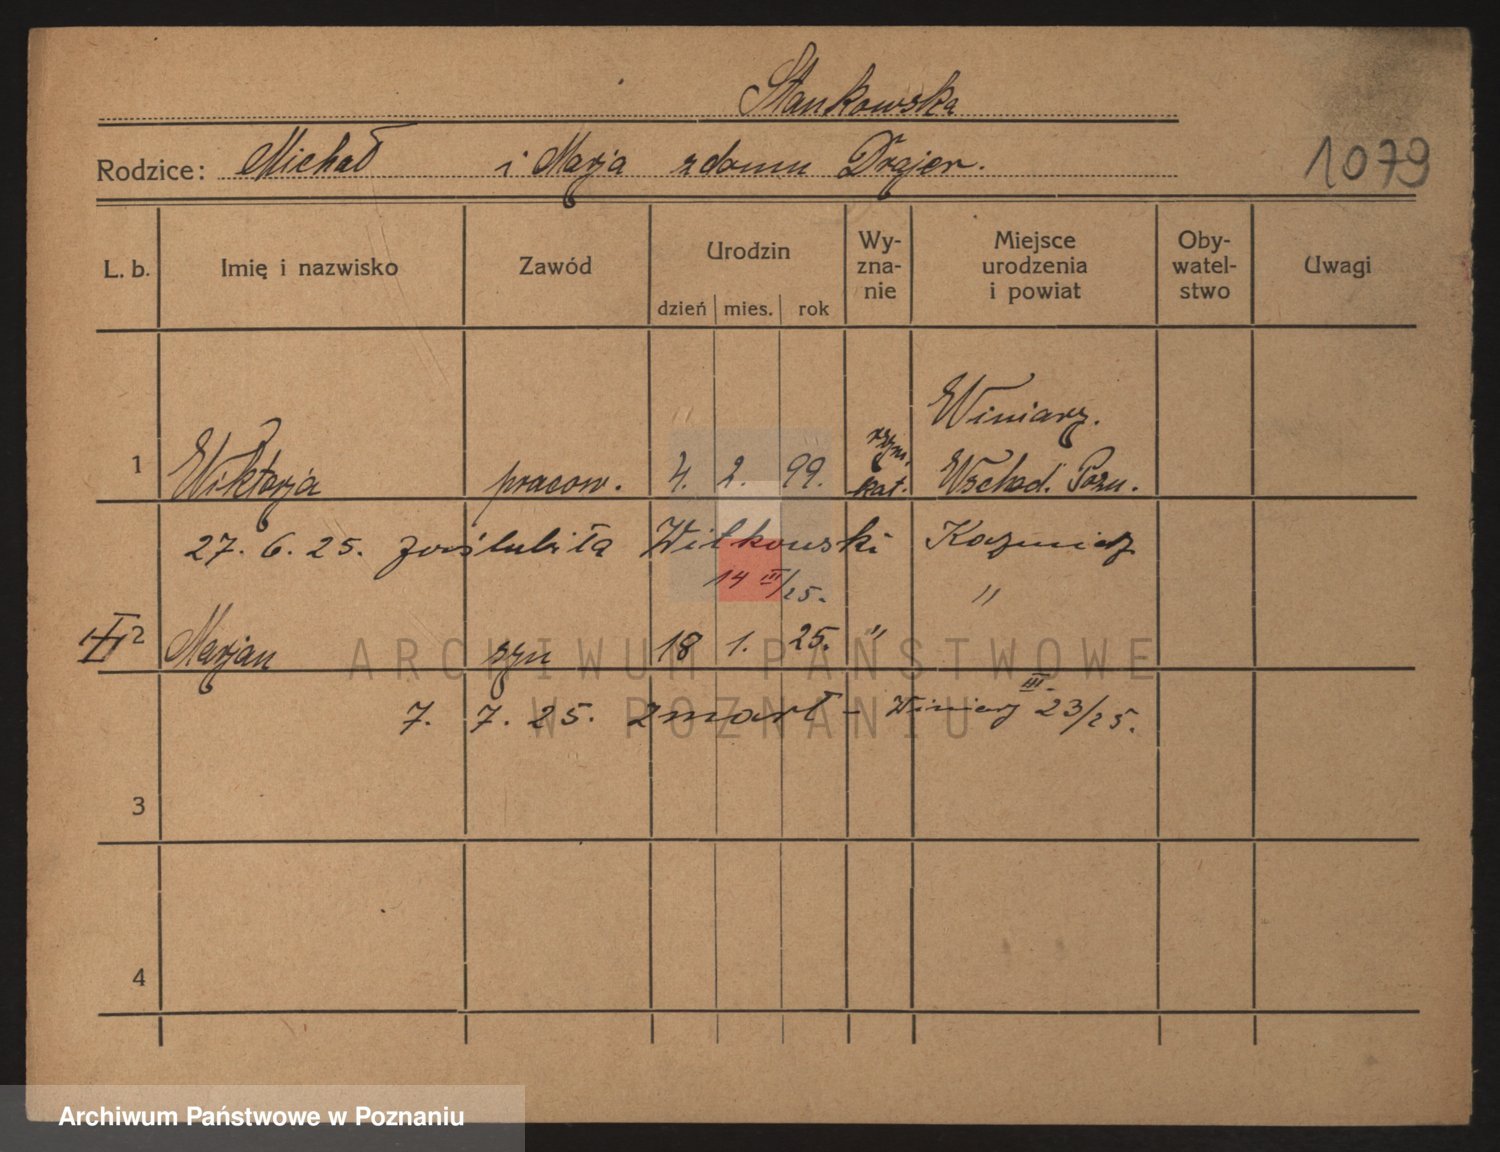 Stankowska
Rodzice: Michał i Marja z domu Drajer.
1079
L. b. Imię i nazwisko Zawód Urodzin dzień mies. rok Wy-zna-nie Miejsce urodzenia i powiat Oby-watel-stwo Uwagi
Winiary.
1 Wiktorja pracow. 4. 2. 99. rzym. kat. Wschod. Pozn.
27. 6. 25. zaślubiła Witkowski Kaźmierz
14 III/25. "
2 Marjan syn 18 1. 25. "
7. 7. 25. zmarł - Winiary 23/III 25.
3
4
ARCHIWUM PAŃSTWOWE
W POZNANIU
Archiwum Państwowe w Poznaniu